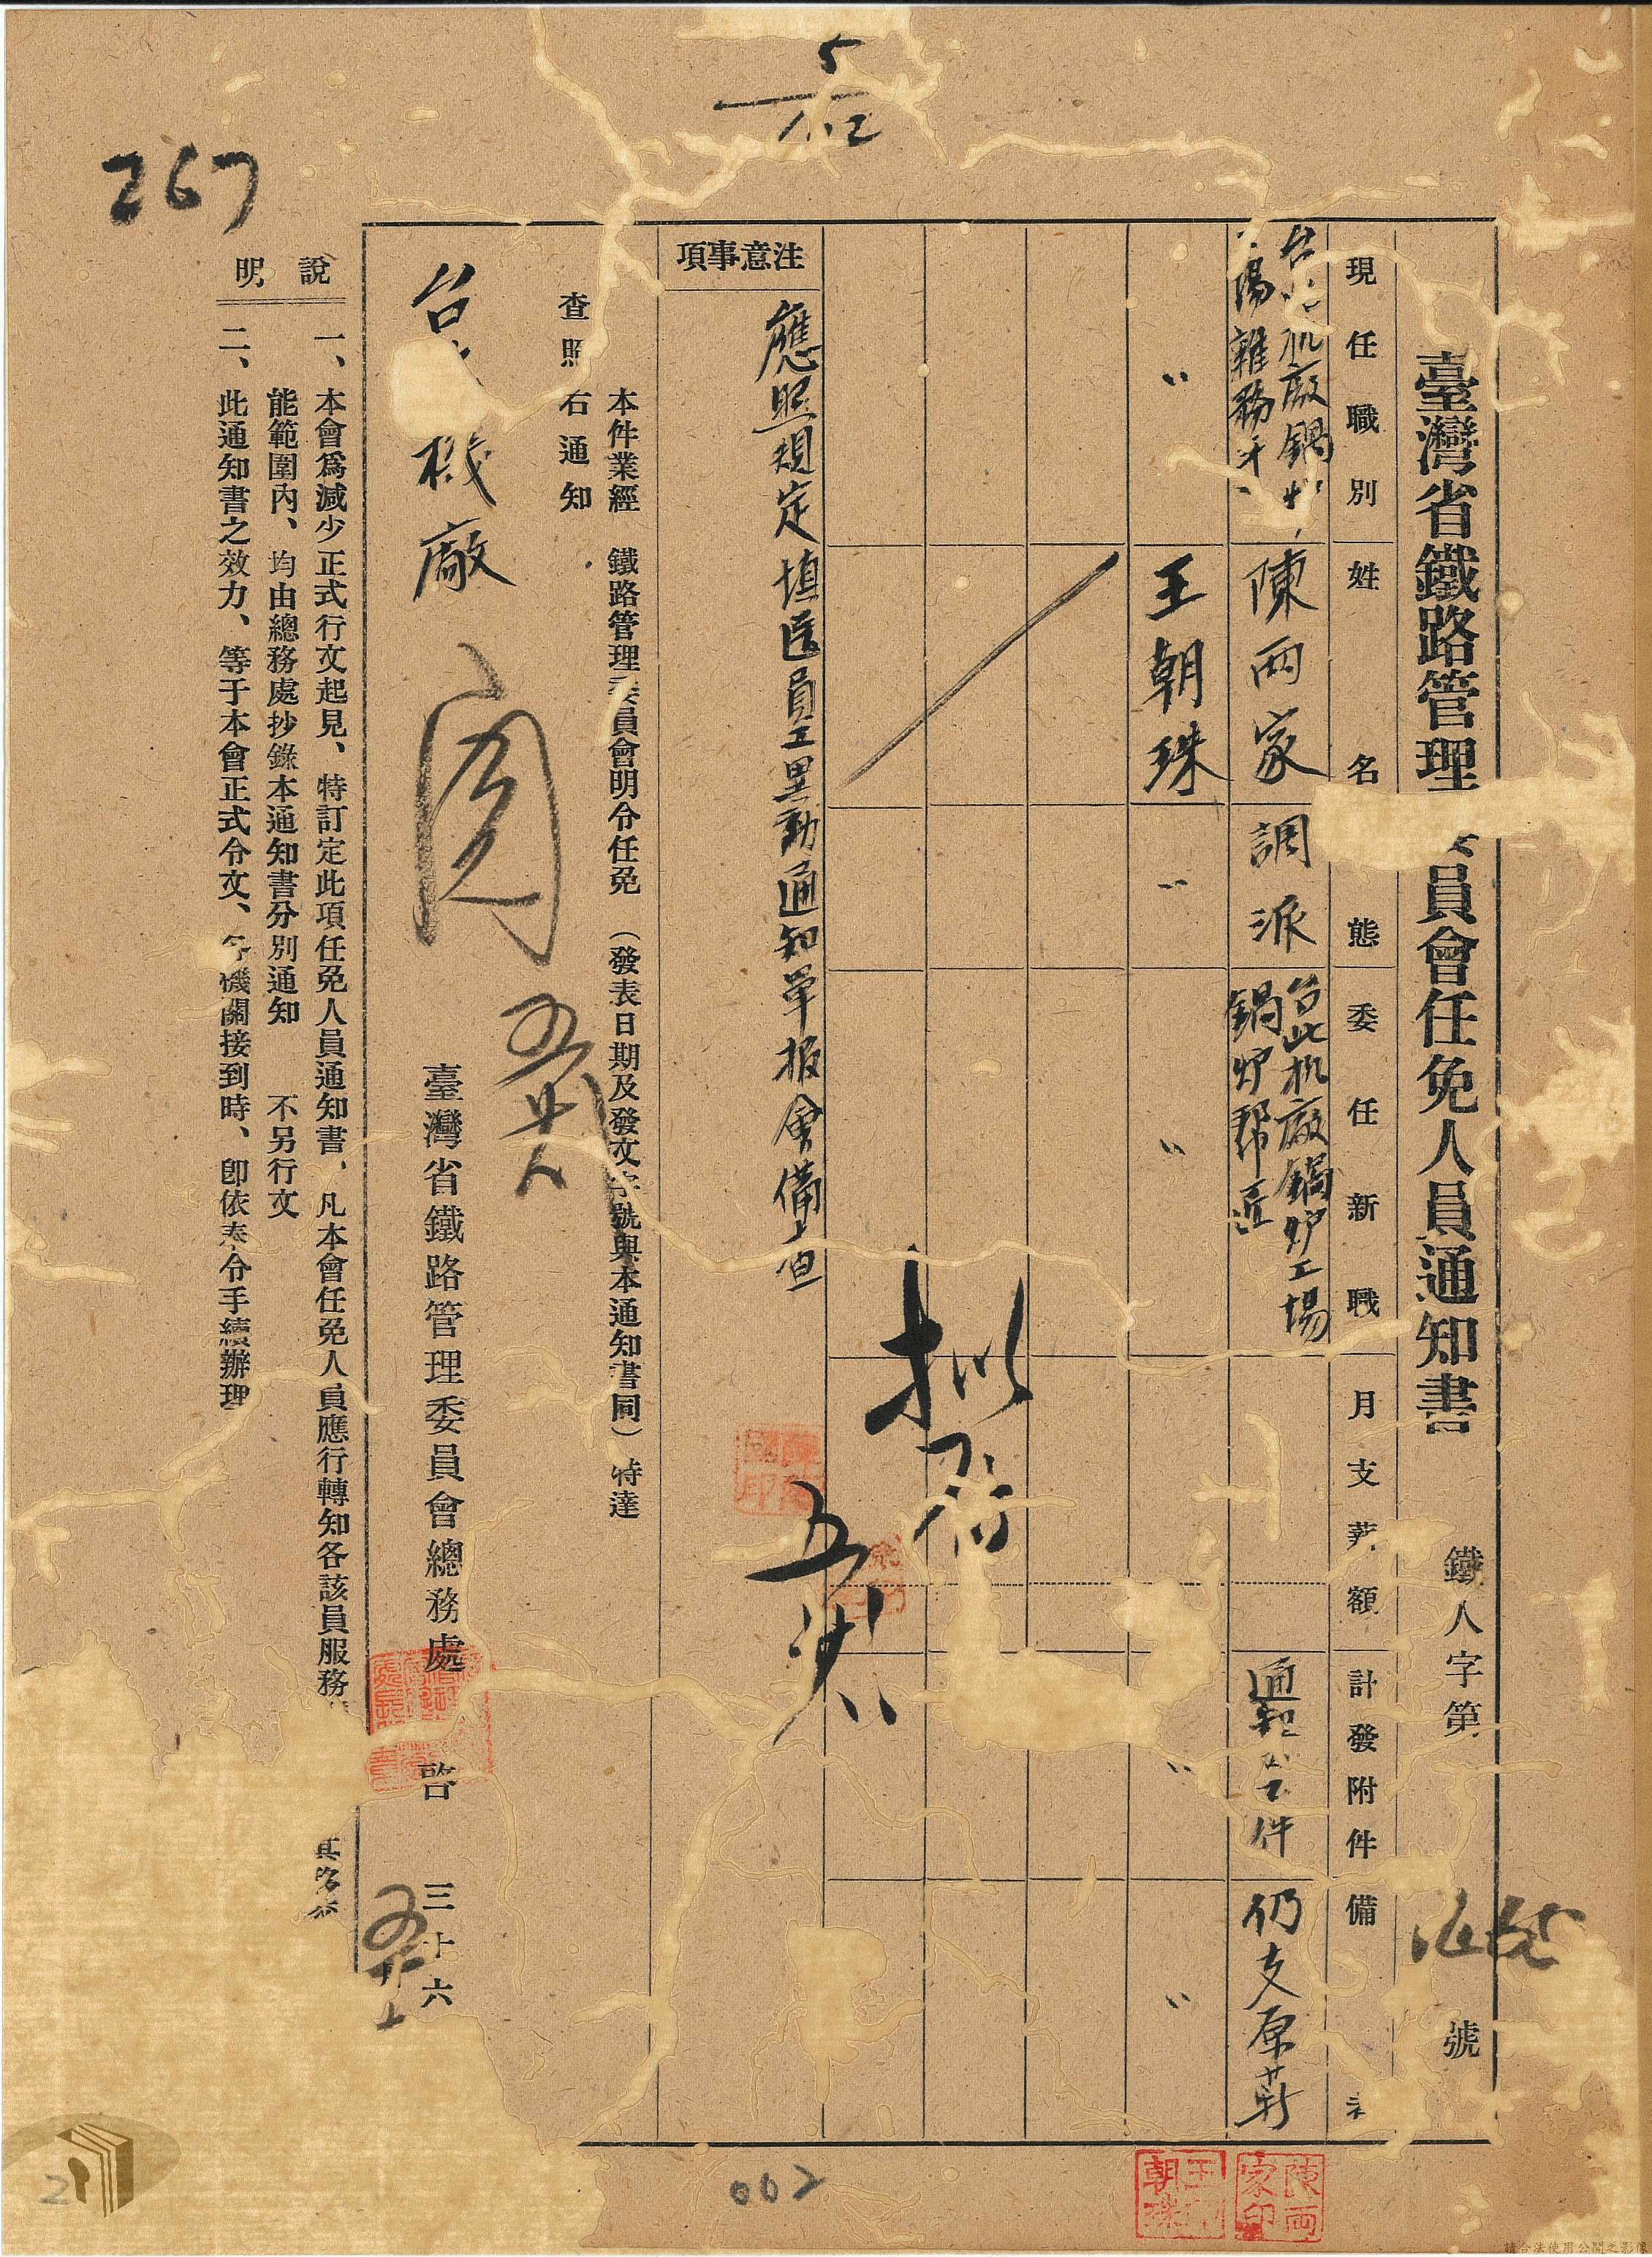 臺灣省鐵路管理員會任免人員通知書
鐵人字第 號
現任職別
姓名
態
委任新職
月支薪額
計發附件
備
台北机廠鍋炉
場雜務
陳两家
調派
台北机廠鍋炉工場
鍋炉帮匠
通知書一件
仍支原薪
〃
王朝珠
〃
〃
〃
〃
注意事項
應照規定填送員工異動通知單报會備查
拟存
本件業經 鐵路管理委員會明令任免（發表日期及發文字號與本通知書同）特達
查照 右通知
台機廠
閱
臺灣省鐵路管理委員會總務處 啓 三十六
說明
一、本會爲減少正式行文起見、特訂定此項任免人員通知書、凡本會任免人員應行轉知各該員服務
能範圍內、均由總務處抄錄本通知書分別通知 不另行文
二、此通知書之效力、等于本會正式令文、各機關接到時、卽依奉令手續辦理
267
5/12
002
2
陳两家印
王朝珠
請合法使用公開之影像